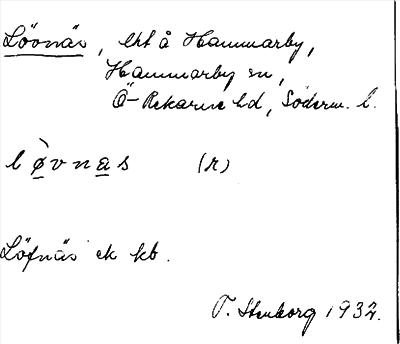 Lövnäs, lht å Hammarby,
Hammarby sn,
Ö-Rekarne hd, Söderm. l.
lø̀vnas (r)
Löfnäs ek kb.
T. Stenborg 1932.